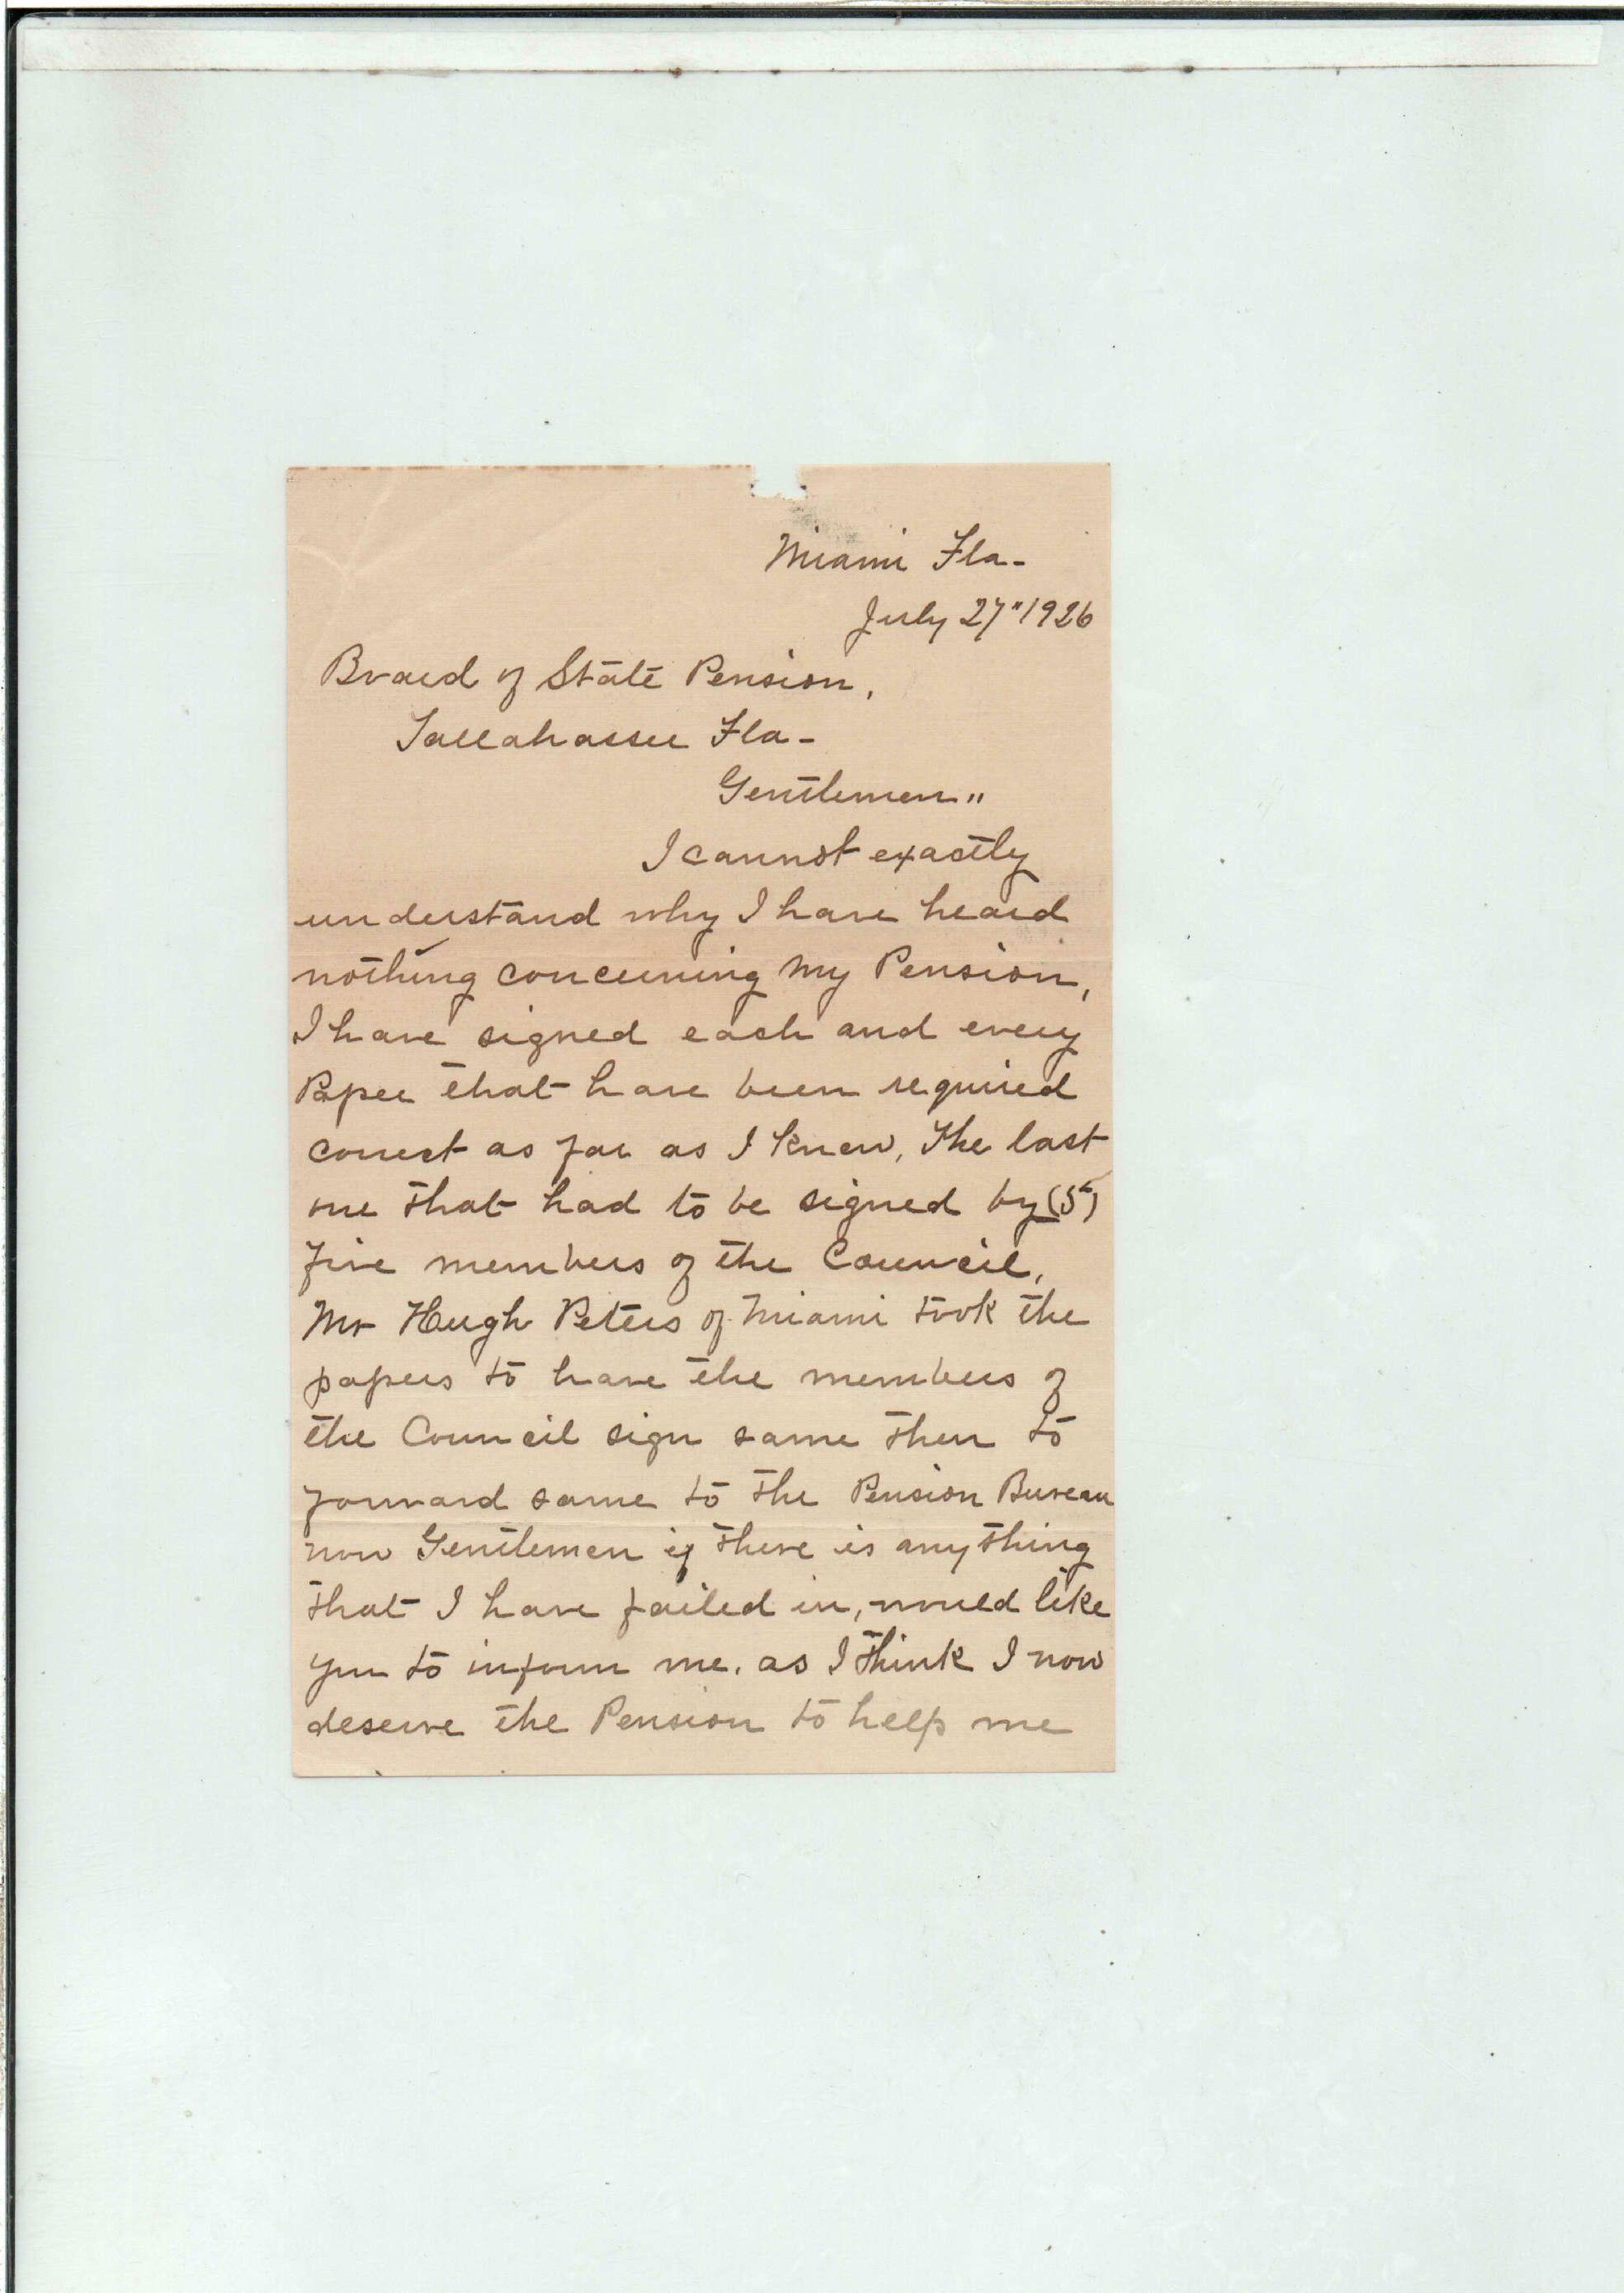 Miami Fla-
July 27" 1926
Board of State Pension,
Tallahassee Fla-
Gentlemen "
I cannot exactly
understand why I have heard
nothing concerning my Pension,
I have signed each and every
Paper that have been required
correct as far as I knew, The last
one that had to be signed by (5)
five members of the Council,
Mr Hugh Peters of Miami took the
papers to have the members of
the Council sign same then to
forward same to the Pension Bureau
now Gentlemen if there is anything
that I have failed in, would like
you to inform me. as I think I now
deserve the Pension to help me